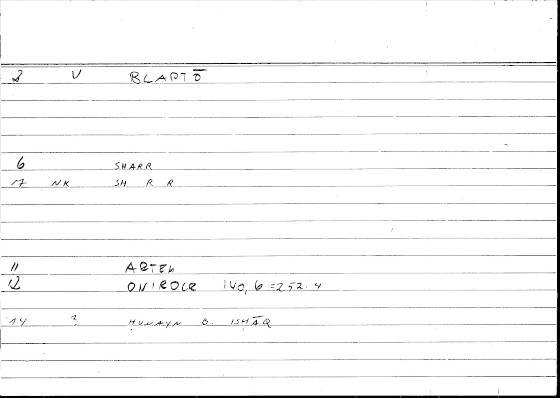 2 V BLAPTŌ
6 SHARR
17 NK SH R R
11 ARTEM
12 ONIROCR 140, 6 = 252.4
14 ? ḤUNAYN B. ISḤĀQ